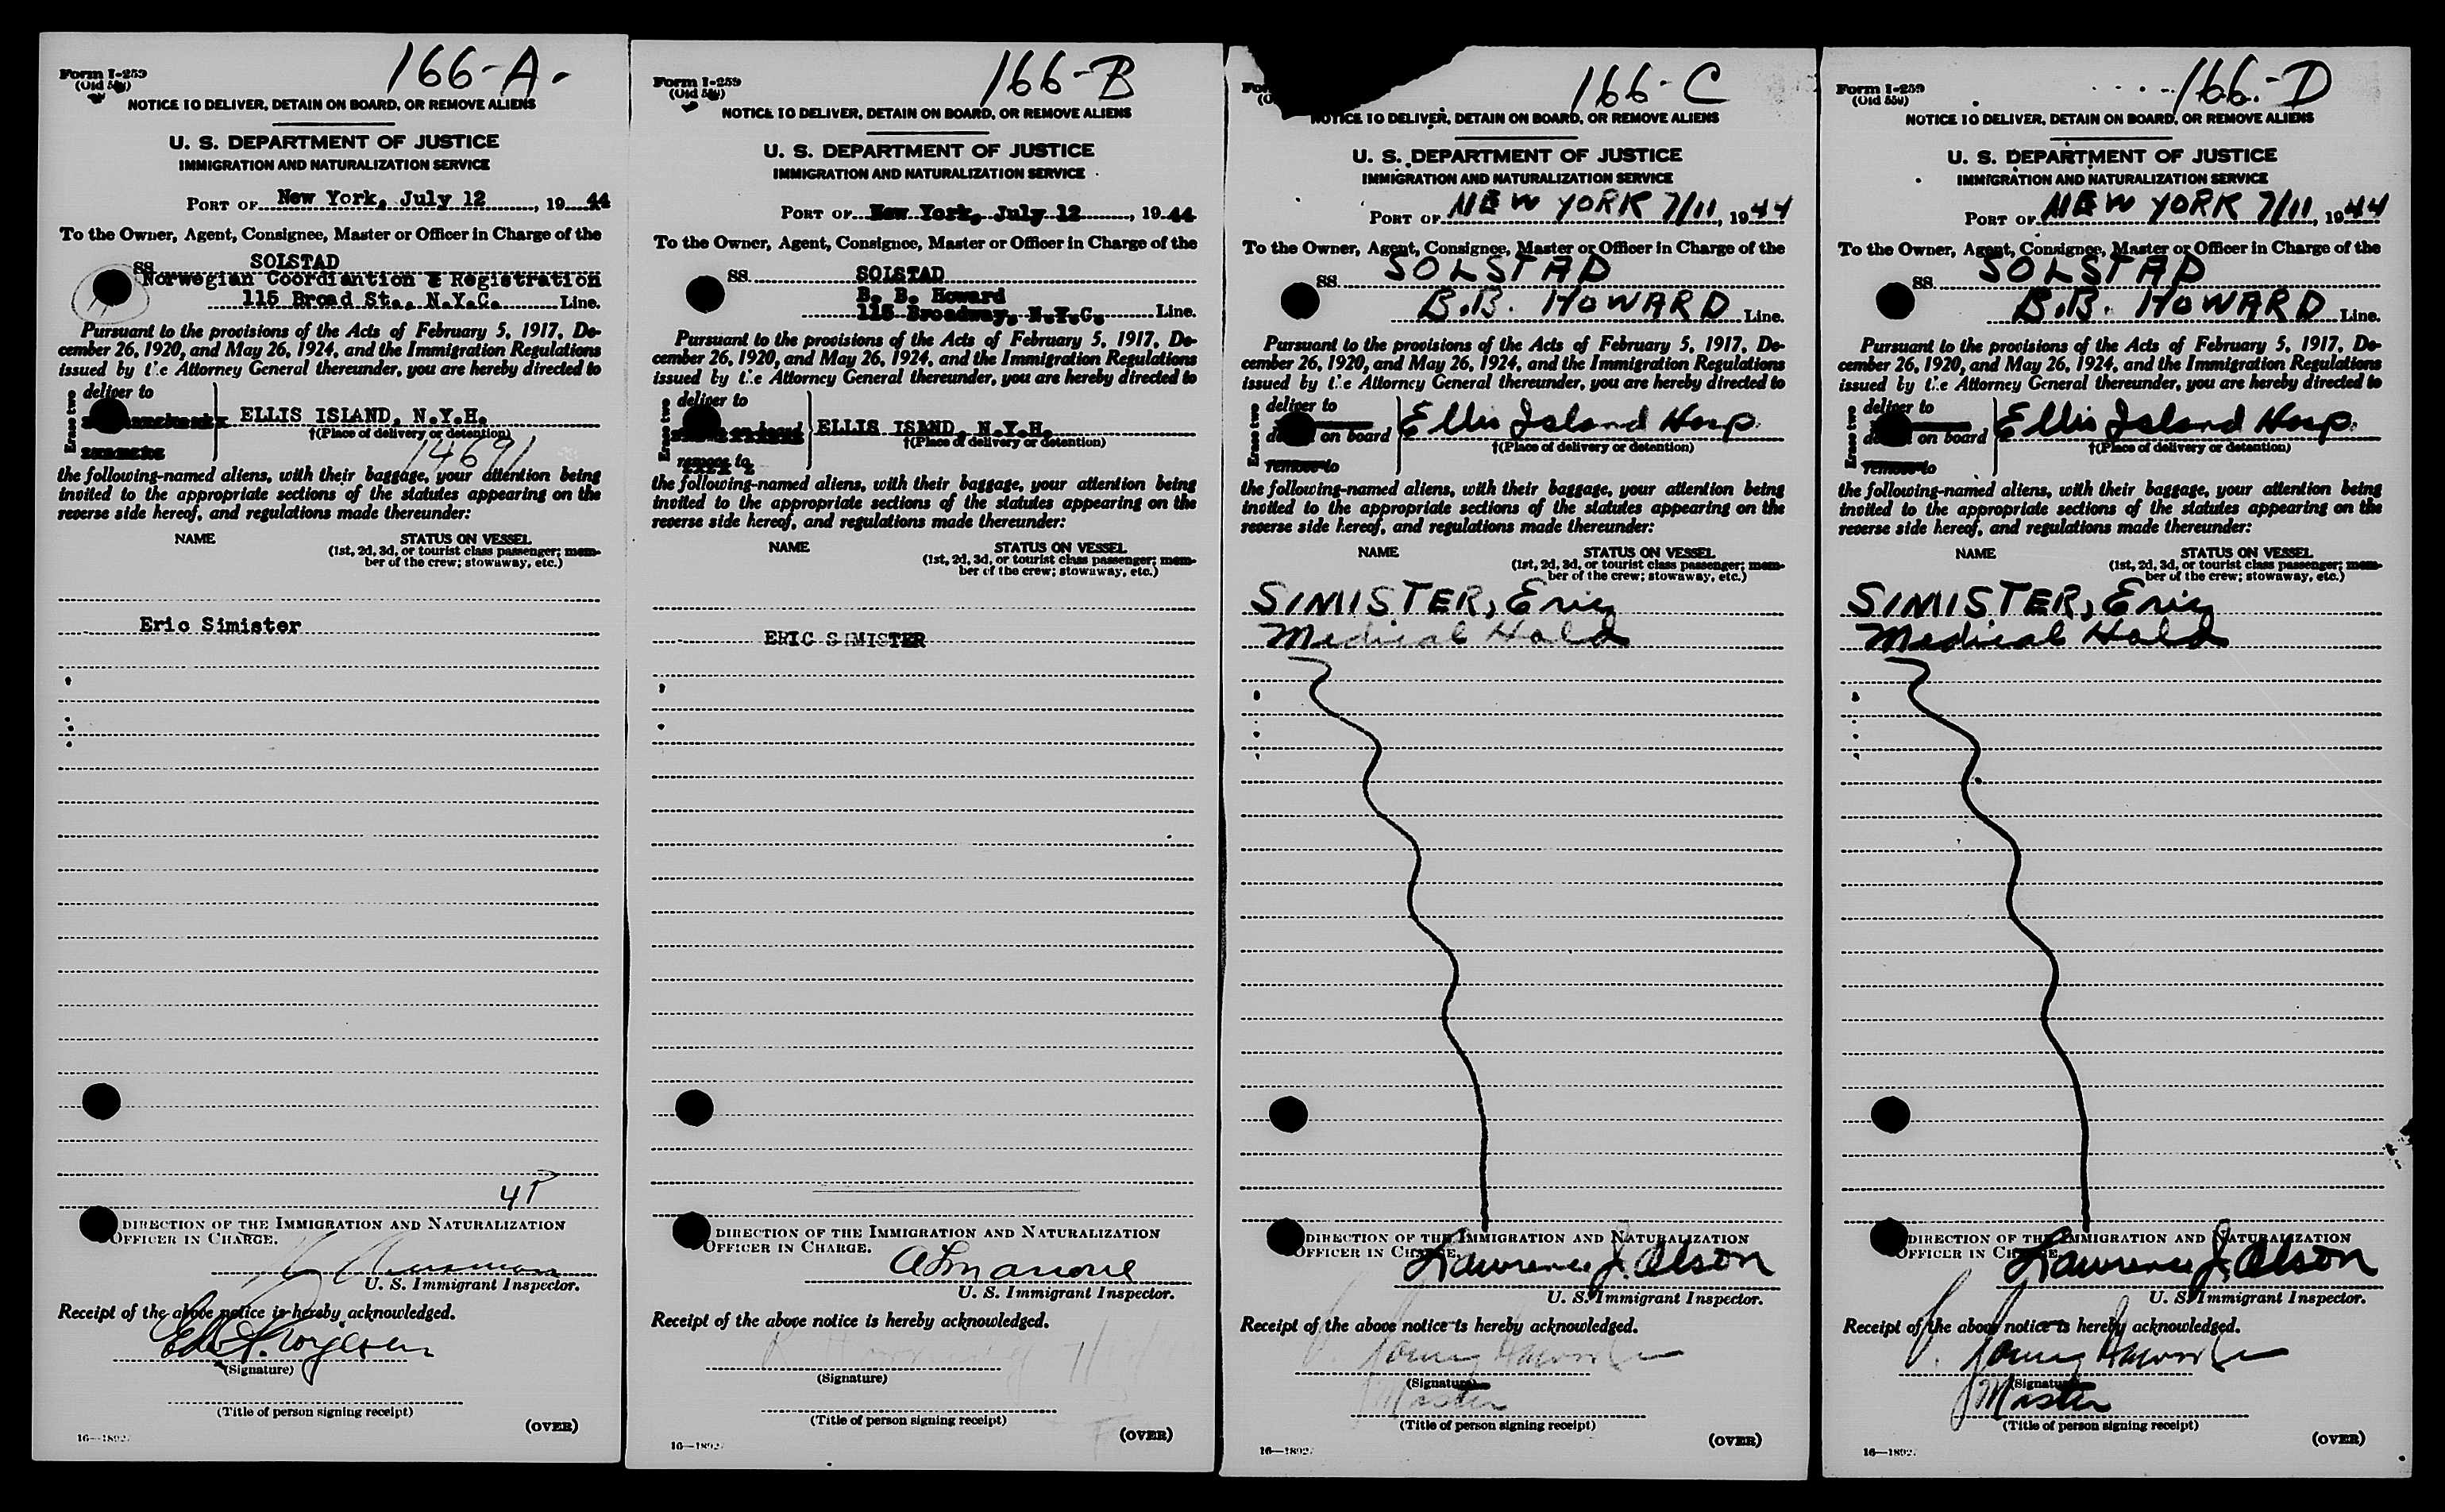 166-A.
Form I-259
(Old 559)
NOTICE TO DELIVER, DETAIN ON BOARD, OR REMOVE ALIENS
U. S. DEPARTMENT OF JUSTICE
IMMIGRATION AND NATURALIZATION SERVICE
PORT OF New York, July 12, 1944
To the Owner, Agent, Consignee, Master or Officer in Charge of the
SS. SOLSTAD
Norwegian Coordiantion & Registration
115 Broad St., N.Y.C. Line.
Pursuant to the provisions of the Acts of February 5, 1917, De-
cember 26, 1920, and May 26, 1924, and the Immigration Regulations
issued by the Attorney General thereunder, you are hereby directed to
Erase two
deliver to
ELLIS ISLAND, N.Y.H.
†(Place of delivery or detention)
14691
the following-named aliens, with their baggage, your attention being
invited to the appropriate sections of the statutes appearing on the
reverse side hereof, and regulations made thereunder:
NAME STATUS ON VESSEL
(1st, 2d, 3d, or tourist class passenger; mem-
ber of the crew; stowaway, etc.)
Eric Simister
4P
DIRECTION OF THE IMMIGRATION AND NATURALIZATION
OFFICER IN CHARGE.
U. S. Immigrant Inspector.
Receipt of the above notice is hereby acknowledged.
(Signature)
(Title of person signing receipt)
(OVER)
166-B
Form I-259
(Old 559)
NOTICE TO DELIVER, DETAIN ON BOARD, OR REMOVE ALIENS
U. S. DEPARTMENT OF JUSTICE
IMMIGRATION AND NATURALIZATION SERVICE
PORT OF New York, July 12, 1944
To the Owner, Agent, Consignee, Master or Officer in Charge of the
SS. SOLSTAD
B. B. Howard
115 Broadway, N.Y.C. Line.
Pursuant to the provisions of the Acts of February 5, 1917, De-
cember 26, 1920, and May 26, 1924, and the Immigration Regulations
issued by the Attorney General thereunder, you are hereby directed to
Erase two
deliver to
on board
ELLIS ISAND, N.Y.H.
†(Place of delivery or detention)
remove to
the following-named aliens, with their baggage, your attention being
invited to the appropriate sections of the statutes appearing on the
reverse side hereof, and regulations made thereunder:
NAME STATUS ON VESSEL
(1st, 2d, 3d, or tourist class passenger; mem-
ber of the crew; stowaway, etc.)
ERIC SIMISTER
DIRECTION OF THE IMMIGRATION AND NATURALIZATION
OFFICER IN CHARGE.
U. S. Immigrant Inspector.
Receipt of the above notice is hereby acknowledged.
(Signature)
(Title of person signing receipt)
(OVER)
166-C
NOTICE TO DELIVER, DETAIN ON BOARD, OR REMOVE ALIENS
U. S. DEPARTMENT OF JUSTICE
IMMIGRATION AND NATURALIZATION SERVICE
PORT OF NEW YORK 7/11, 1944
To the Owner, Agent, Consignee, Master or Officer in Charge of the
SS. SOLSTAD
B.B. HOWARD Line.
Pursuant to the provisions of the Acts of February 5, 1917, De-
cember 26, 1920, and May 26, 1924, and the Immigration Regulations
issued by the Attorney General thereunder, you are hereby directed to
Erase two
deliver to
on board
Ellis Island Hosp.
†(Place of delivery or detention)
remove to
the following-named aliens, with their baggage, your attention being
invited to the appropriate sections of the statutes appearing on the
reverse side hereof, and regulations made thereunder:
NAME STATUS ON VESSEL
(1st, 2d, 3d, or tourist class passenger; mem-
ber of the crew; stowaway, etc.)
SIMISTER, Eric
Medical Hold
DIRECTION OF THE IMMIGRATION AND NATURALIZATION
OFFICER IN CHARGE.
Lawrence J. Olson
U. S. Immigrant Inspector.
Receipt of the above notice is hereby acknowledged.
(Signature)
Master
(Title of person signing receipt)
(OVER)
166-D
Form I-259
(Old 559)
NOTICE TO DELIVER, DETAIN ON BOARD, OR REMOVE ALIENS
U. S. DEPARTMENT OF JUSTICE
IMMIGRATION AND NATURALIZATION SERVICE
PORT OF NEW YORK 7/11, 1944
To the Owner, Agent, Consignee, Master or Officer in Charge of the
SS. SOLSTAD
B.B. HOWARD Line.
Pursuant to the provisions of the Acts of February 5, 1917, De-
cember 26, 1920, and May 26, 1924, and the Immigration Regulations
issued by the Attorney General thereunder, you are hereby directed to
Erase two
deliver to
on board
Ellis Island Hosp.
†(Place of delivery or detention)
remove to
the following-named aliens, with their baggage, your attention being
invited to the appropriate sections of the statutes appearing on the
reverse side hereof, and regulations made thereunder:
NAME STATUS ON VESSEL
(1st, 2d, 3d, or tourist class passenger; mem-
ber of the crew; stowaway, etc.)
SIMISTER, Eric
Medical Hold
DIRECTION OF THE IMMIGRATION AND NATURALIZATION
OFFICER IN CHARGE.
Lawrence J. Olson
U. S. Immigrant Inspector.
Receipt of the above notice is hereby acknowledged.
(Signature)
Master
(Title of person signing receipt)
(OVER)